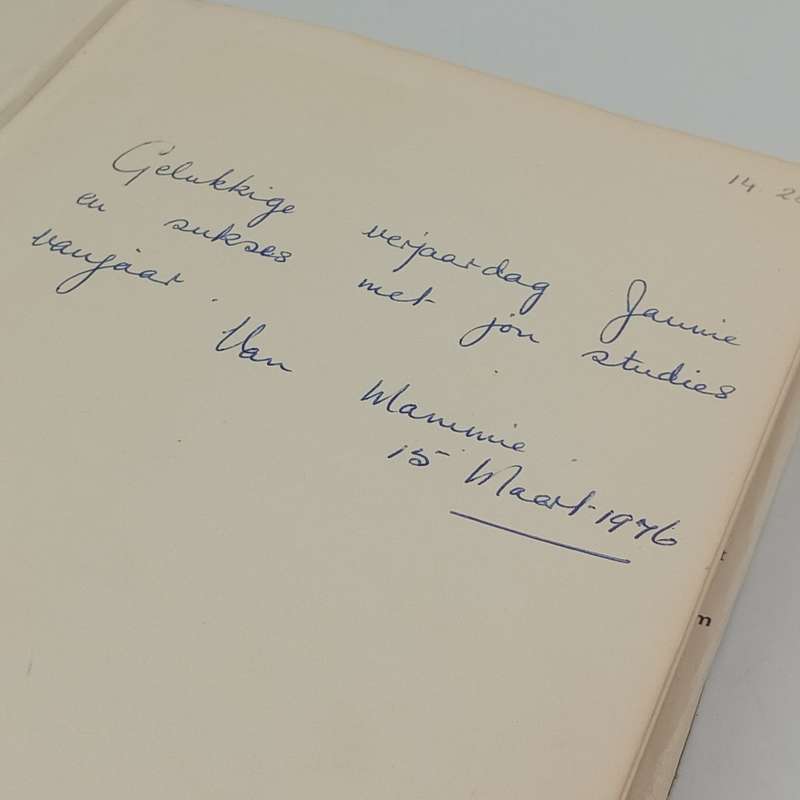 14. 20
Gelukkige verjaardag Jannie
en sukses met jou studies
vanjaar.
Van
Mammie.
15 Maart 1976
m